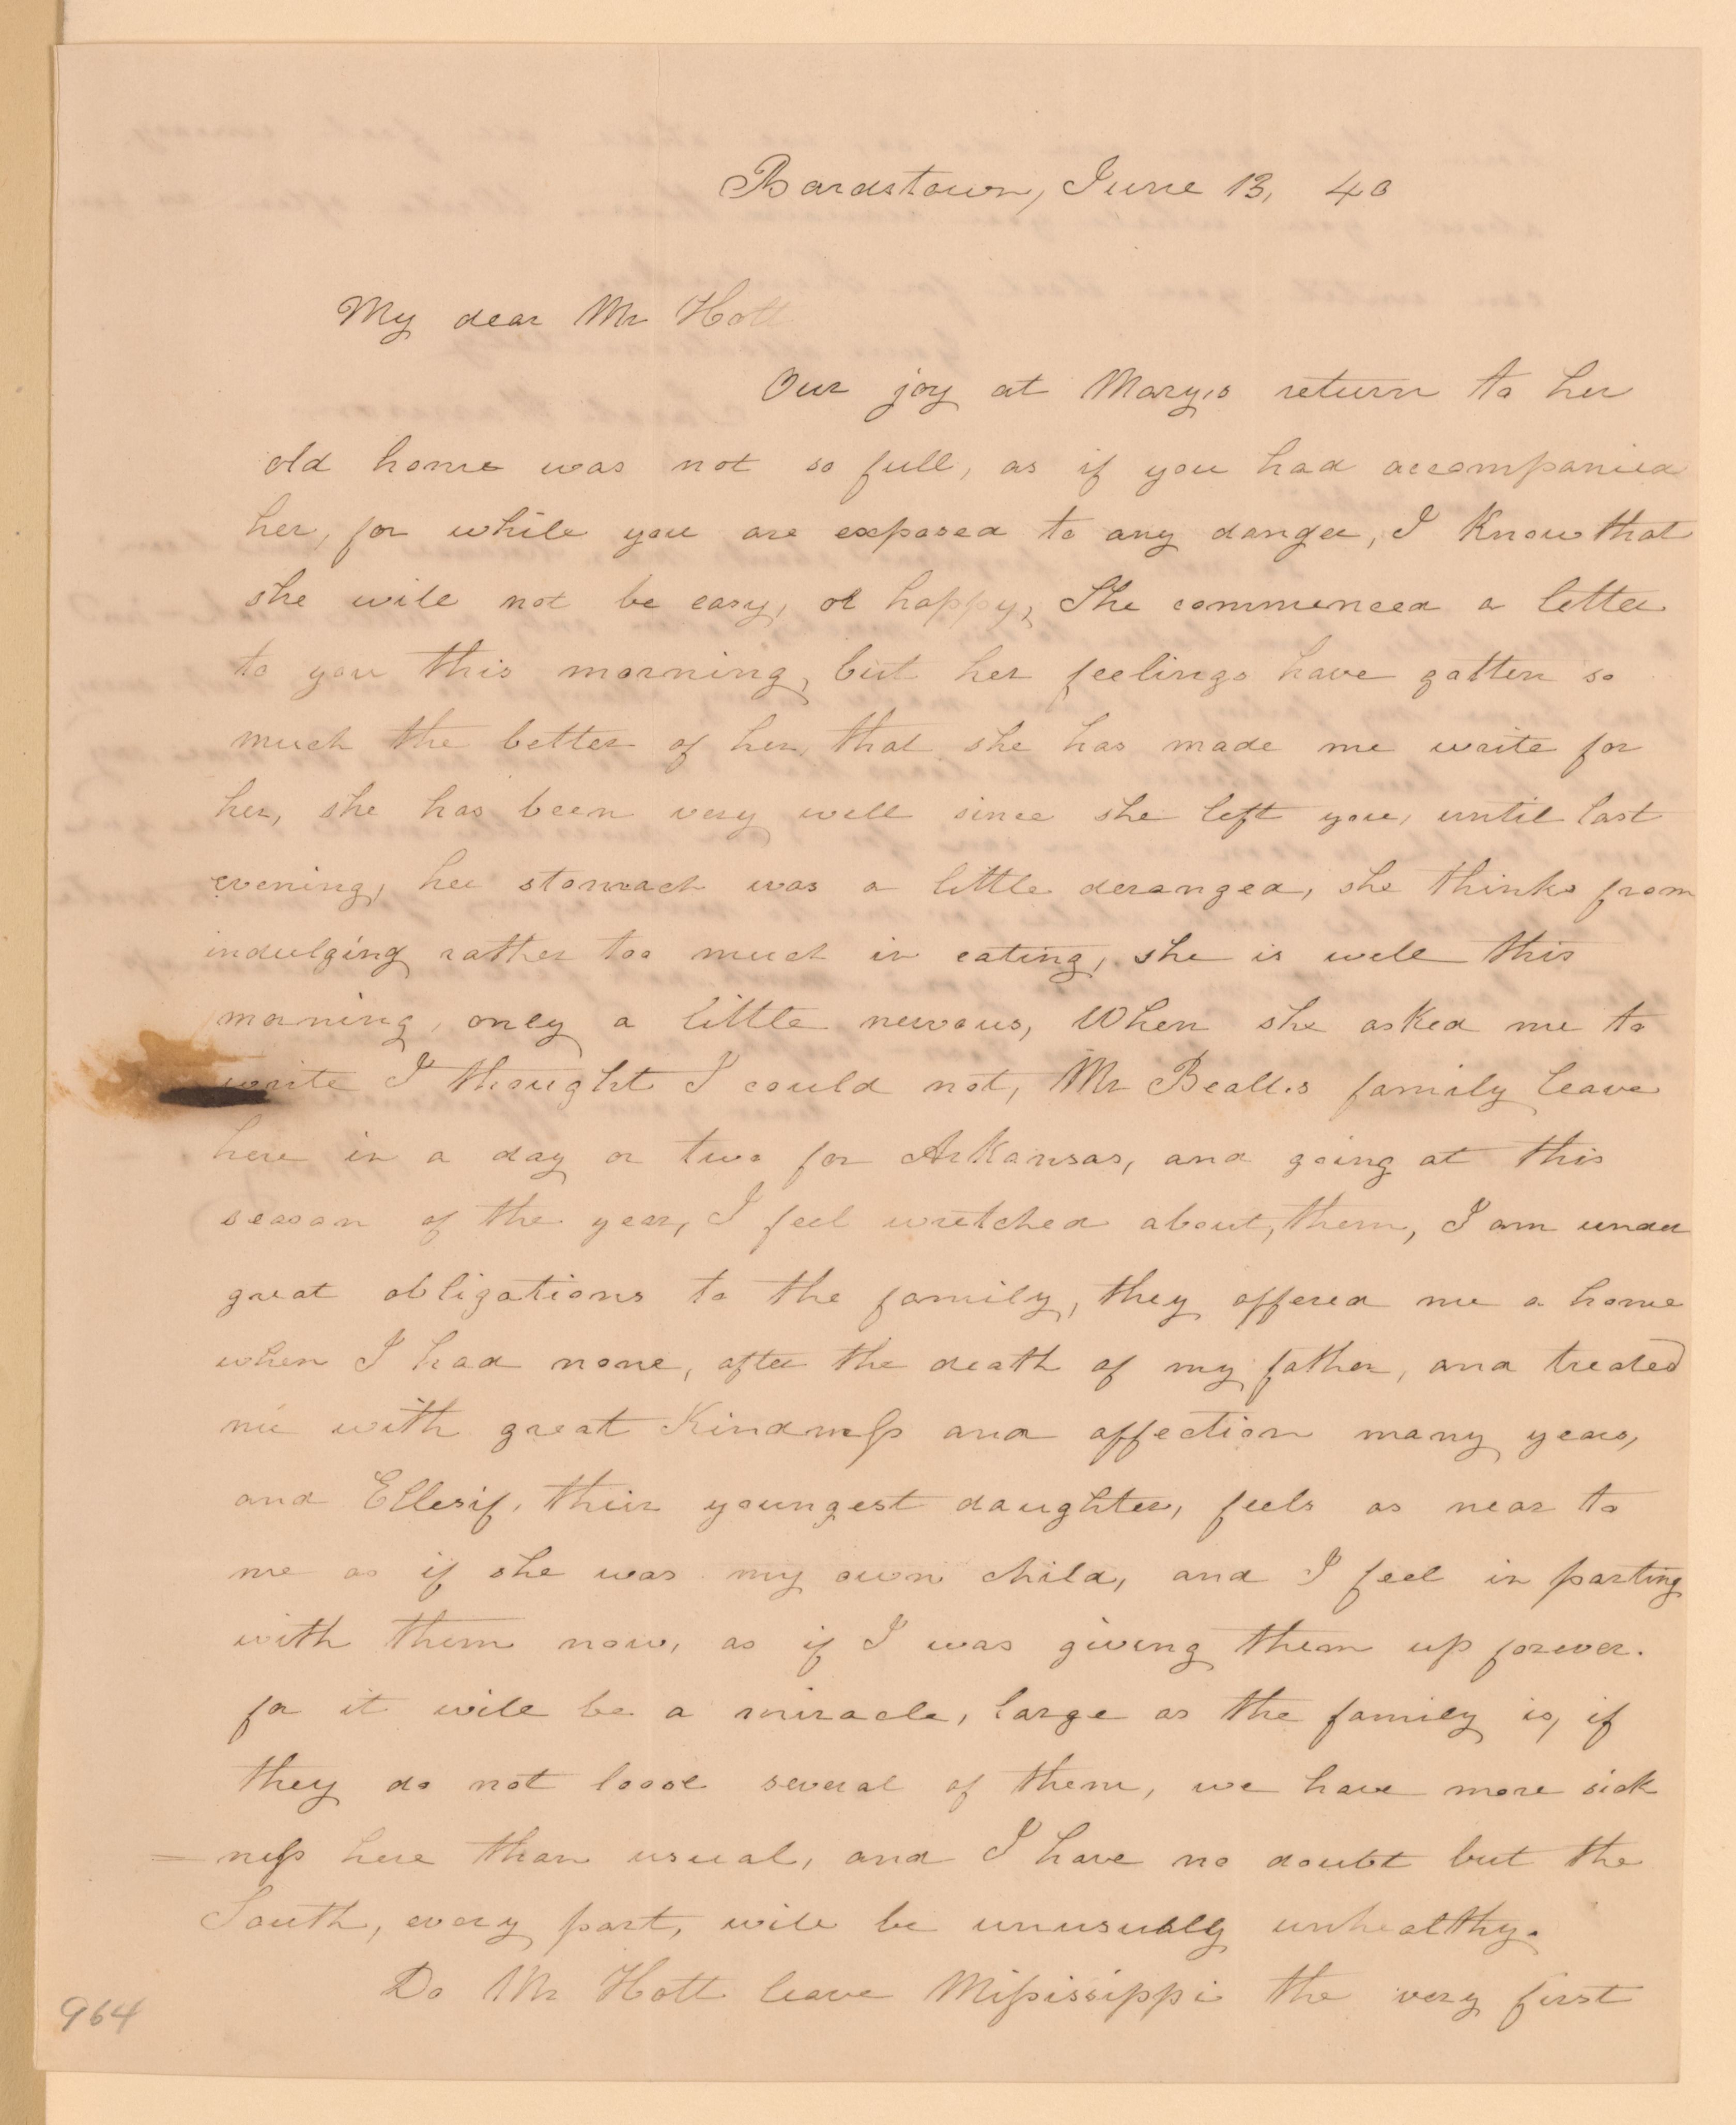 Bardstown, June 13, 40
My dear Mr Hott
Our joy at Mary,s return to her
old home was not so full, as if you had accompanied
her, for while you are exposed to any danger, I Know that
she will not be easy, or happy, She commenced a letter
to you this morning, but her feelings have gotten so
much the better of her, that she has made me write for
her, she has been very well since she left you, until last
evening, her stomach was a little deranged, she thinks from
indulging rather too much in eating, she is well this
morning, only a little nervous, When she asked me to
write I thought I could not, Mr Beall,s family leave
here in a day or two for Arkansas, and going at this
season of the year, I feel wretched about, them, I am under
great obligations to the family, they offered me a home
when I had none, after the death of my father, and treated
me with great Kindness and affection many years,
and Ellesif, their youngest daughter, feels as near to
me as if she was my own child, and I feel in parting
with them now, as if I was giving them up forever.
for it will be a miracle, large as the family is, if
they do not loose several of them, we have more sick
= ness here than usual, and I have no doubt but the
South, every part, will be unusually unhealthy.
Do Mr Hott leave Missisippi the very first
964